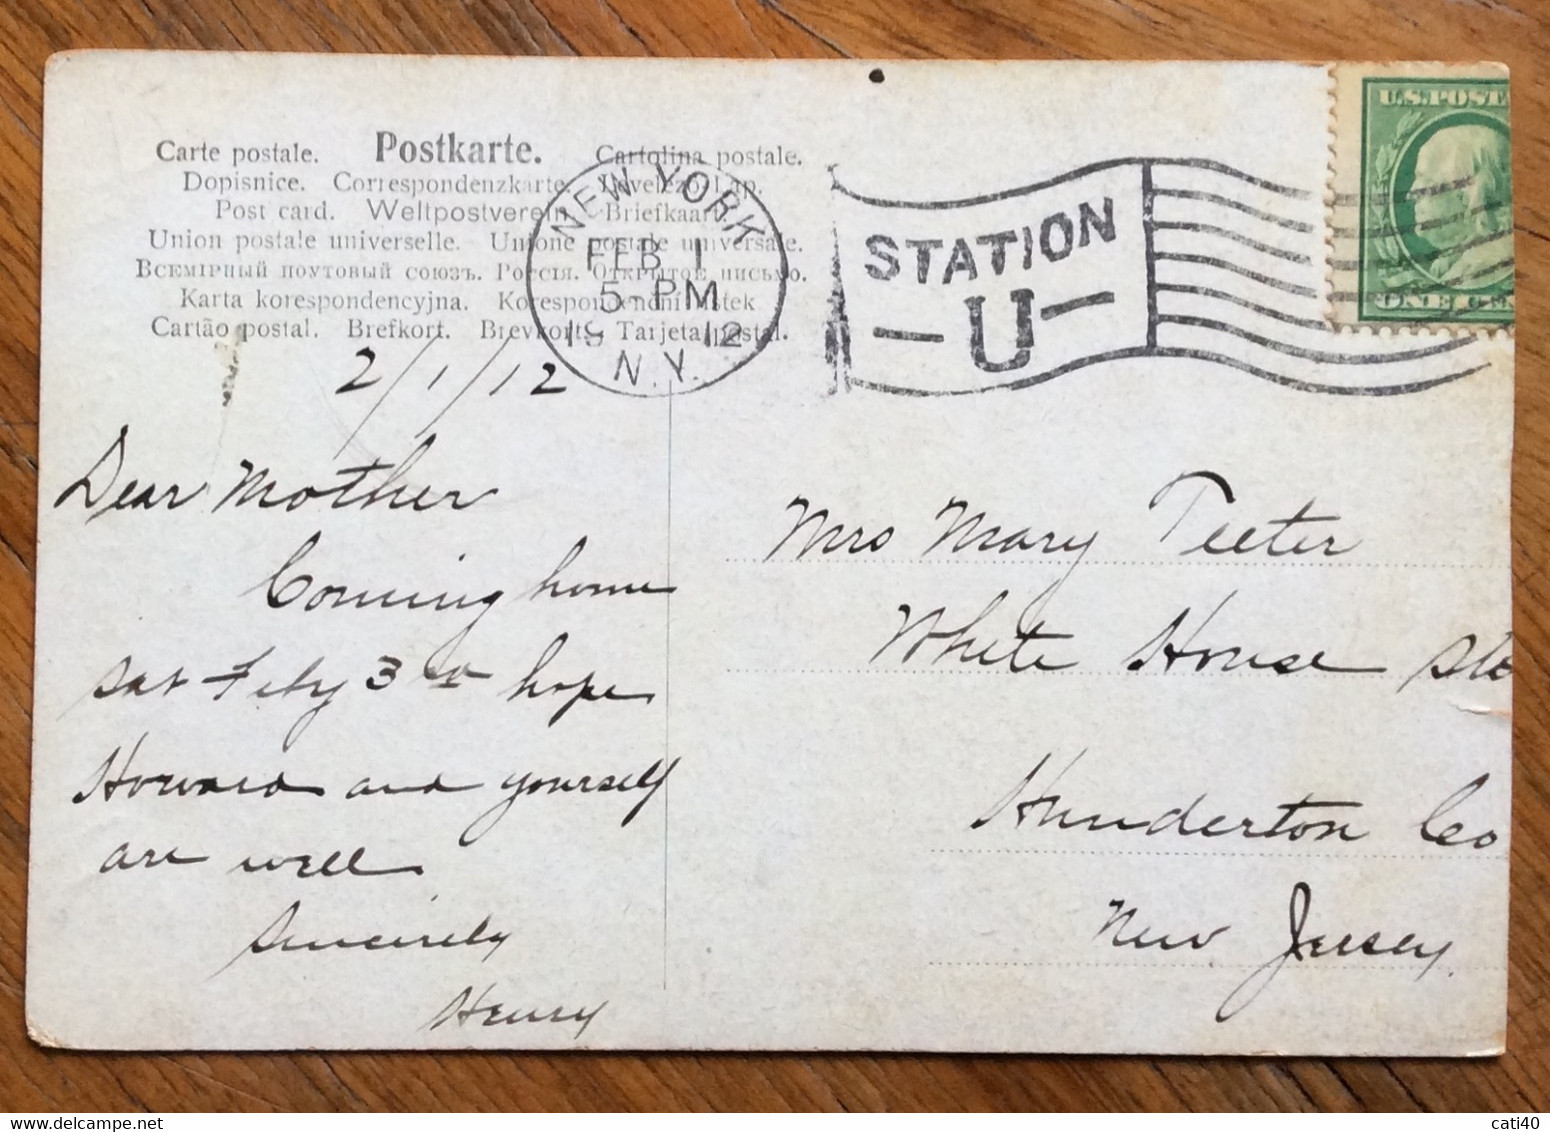 Carte postale. Postkarte. Cartolina postale.
Dopisnice. Correspondenzkarte. Levelező-Lap.
Post card. Weltpostverein. Briefkaart
Union postale universelle. Unione postale universale.
Всемірный почтовый союзъ. Россія. Открытое письмо.
Karta korespondencyjna. Korespondenční lístek
Cartão postal. Brefkort. Brevkort. Tarjeta postal.
NEW YORK
FEB 1
5-PM
12
N.Y.
STATION
U
U.S. POST
ONE
2/1/12
Dear Mother
Coming home
Sat Feby 3rd hope
Howard and yourself
are well
Sincerely
Henry
Mrs Mary Teeter
White House Sta
Hunderton Co
New Jersey.
cati40
www.delcampe.net